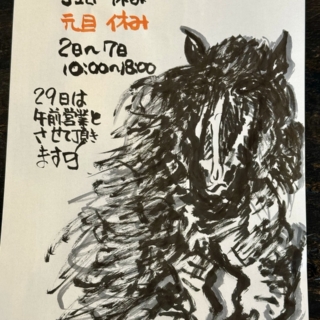 31日 休み
元日 休み
2日~7日
10:00~18:00
29日は
午前営業と
させて頂き
ます